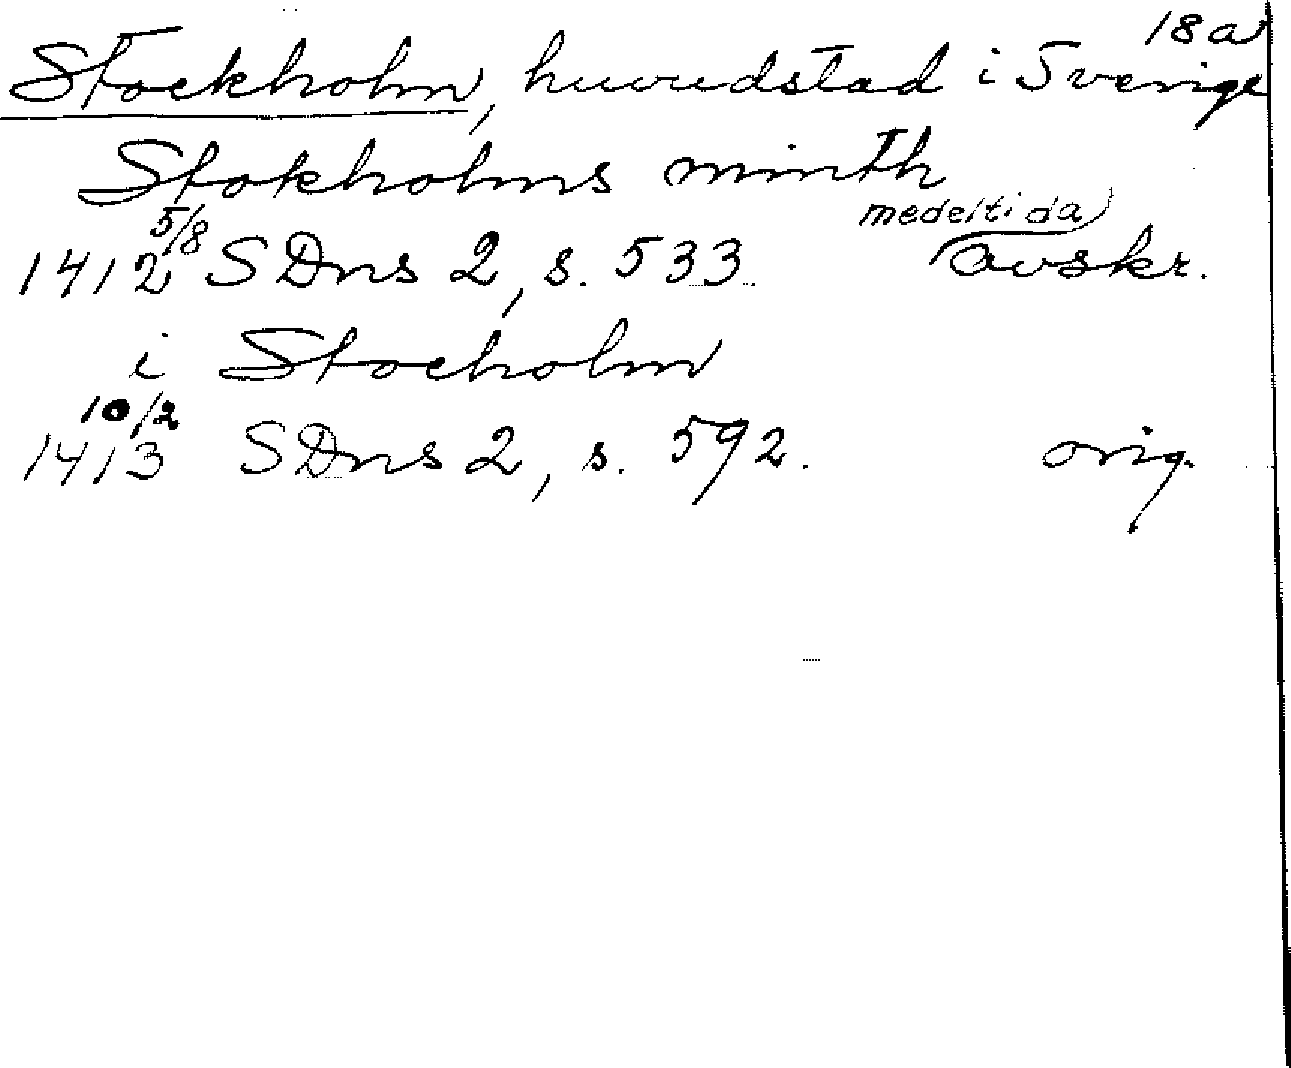 18a
Stockholm, huvudstad i Sverige
Stokholms minth
medeltida
1412 5/8 SDns 2, s. 533. avskr.
i Stocholm
10/2
1413 SDns 2, s. 592. orig.